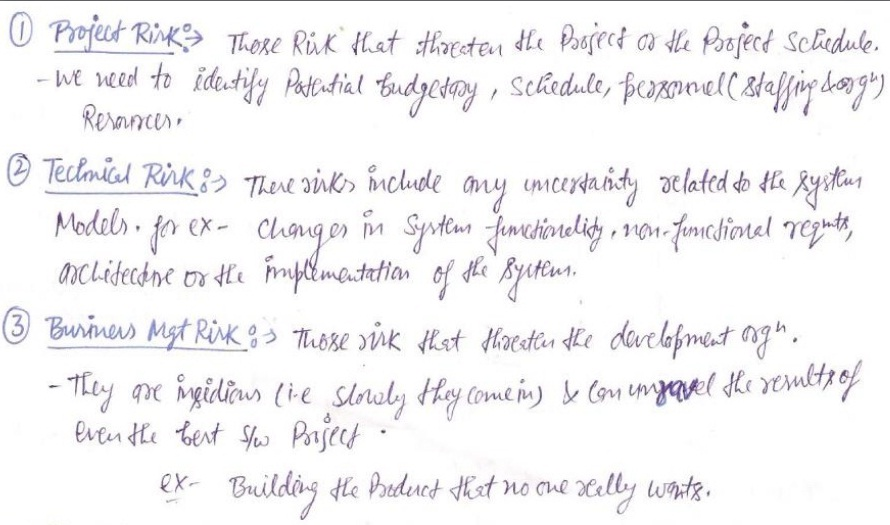 ① Project Risk:→ Those Risk that threaten the Project or the Project Schedule.
- We need to identify Potential Budgetary, Schedule, personnel (staffing & orgⁿ)
Resources.
② Technical Risk:→ These risks include any uncertainty related to the system
Models. for ex- changes in System functionality, non-functional reqmts,
architecture or the implementation of the system.
③ Business Mgt Risk:→ Those risk that threaten the development orgⁿ.
- They are insidious (i.e slowly they come in) & can unravel the results of
even the best s/w Project.
ex- Building the Product that no one really wants.